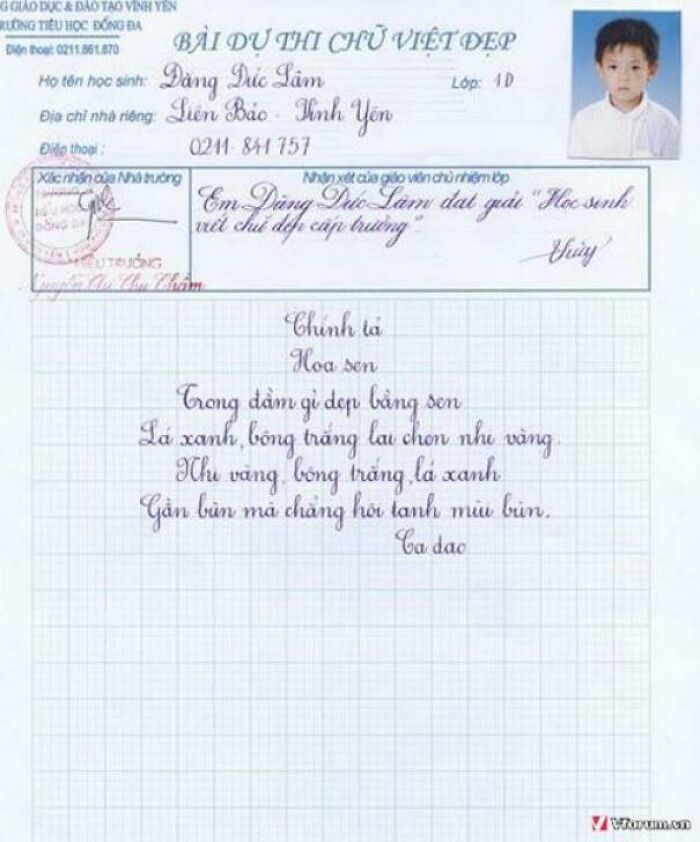 G GIÁO DỤC & ĐÀO TẠO VĨNH YÊN
RƯỜNG TIỂU HỌC ĐỐNG ĐA
Điện thoại: 0211.861.870
BÀI DỰ THI CHỮ VIỆT ĐẸP
Họ tên học sinh: Đặng Đức Lâm Lớp: 1D
Địa chỉ nhà riêng: Liên Bảo - Vĩnh Yên
Điệp thoại : 0211- 841 757
Xác nhận của Nhà trường
Nhận xét của giáo viên chủ nhiệm lớp
Em Đặng Đức Lâm đạt giải "Học sinh
viết chữ đẹp cấp trường"
Thủy
ĐỐNG ĐA
HIỆU TRƯỞNG
Chính tả
Hoa sen
Trong đầm gì đẹp bằng sen
Lá xanh, bông trắng lại chen nhị vàng.
Nhị vàng, bông trắng, lá xanh
Gần bùn mà chẳng hôi tanh mùi bùn.
Ca dao
Vforum.vn